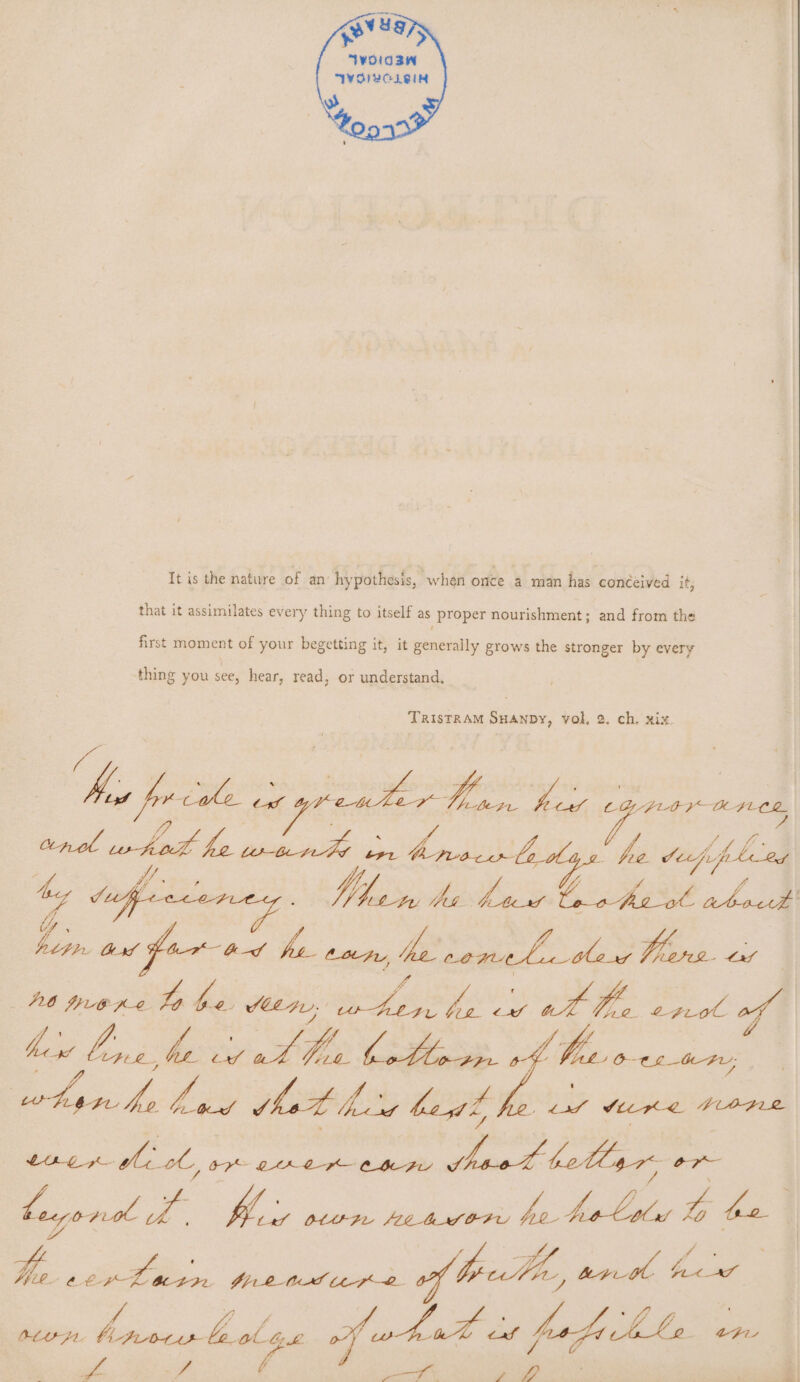 LIBRARY
MEDICAL
HISTORICAL
WELLCOME
DETECTION
FALLACY
DR. HULL'S DEFENCE
It is the nature of an hypothesis, when once a man has conceived it,
that it assimilates every thing to itself as proper nourishment; and from the
first moment of your begetting it, it generally grows the stronger by every
thing you see, hear, read, or understand.
TRISTRAM SHANDY, vol. 2. ch. xix.
His pride is greater than his ignorance,
and what he wants in knowledge he supplies
by sufficiency. When he has looked about
him as far as he can, he concludes there is
no more to be seen; when he is at the end of
his line, he is at the bottom of the ocean;
when he has shot his best, he is sure none
ever did, or ever can shoot better or
beyond it. His own reason he holds to be
the certain measure of truth, and his
own knowledge of what is possible in